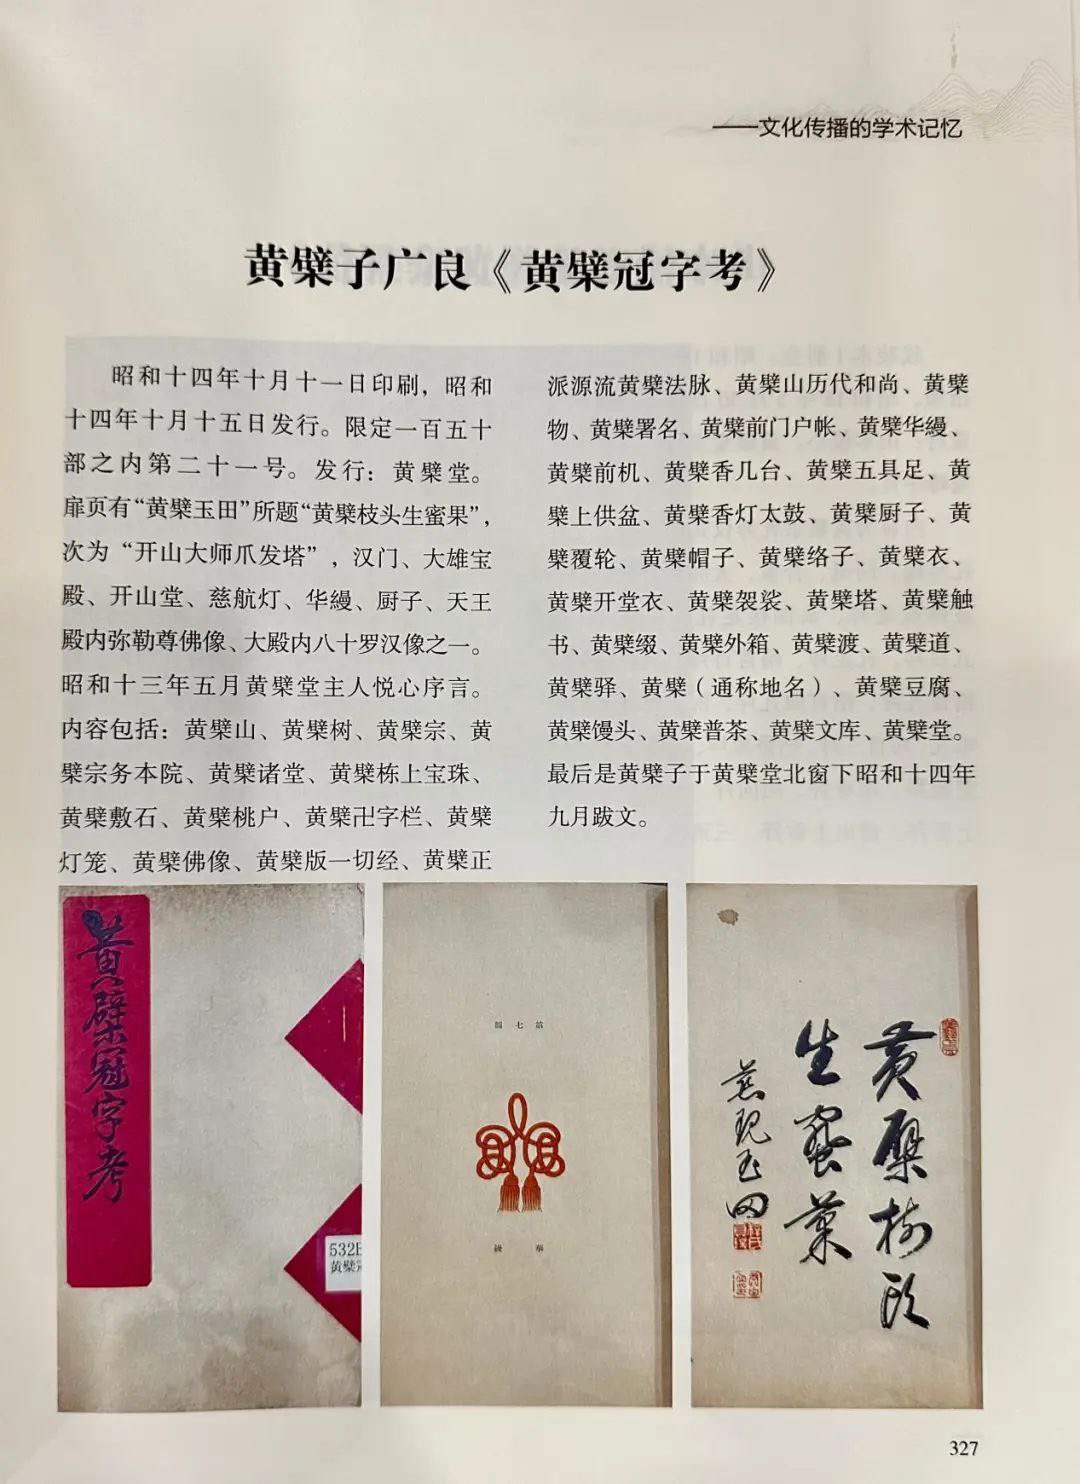 ——文化传播的学术记忆
黄檗子广良《黄檗冠字考》
昭和十四年十月十一日印刷，昭和
十四年十月十五日发行。限定一百五十
部之内第二十一号。发行：黄檗堂。
扉页有“黄檗玉田”所题“黄檗枝头生蜜果”，
次为“开山大师爪发塔”，汉门、大雄宝
殿、开山堂、慈航灯、华缦、厨子、天王
殿内弥勒尊佛像、大殿内八十罗汉像之一。
昭和十三年五月黄檗堂主人悦心序言。
内容包括：黄檗山、黄檗树、黄檗宗、黄
檗宗务本院、黄檗诸堂、黄檗栋上宝珠、
黄檗敷石、黄檗桃户、黄檗卍字栏、黄檗
灯笼、黄檗佛像、黄檗版一切经、黄檗正
派源流黄檗法脉、黄檗山历代和尚、黄檗
物、黄檗署名、黄檗前门户帐、黄檗华缦、
黄檗前机、黄檗香几台、黄檗五具足、黄
檗上供盆、黄檗香灯太鼓、黄檗厨子、黄
檗覆轮、黄檗帽子、黄檗络子、黄檗衣、
黄檗开堂衣、黄檗袈裟、黄檗塔、黄檗触
书、黄檗缀、黄檗外箱、黄檗渡、黄檗道、
黄檗驿、黄檗（通称地名）、黄檗豆腐、
黄檗馒头、黄檗普茶、黄檗文库、黄檗堂。
最后是黄檗子于黄檗堂北窗下昭和十四年
九月跋文。
黄檗冠字考
532E
黄檗冠
圖七第
縵華
黄檗樹頭
生蜜菓
黄檗玉田
327